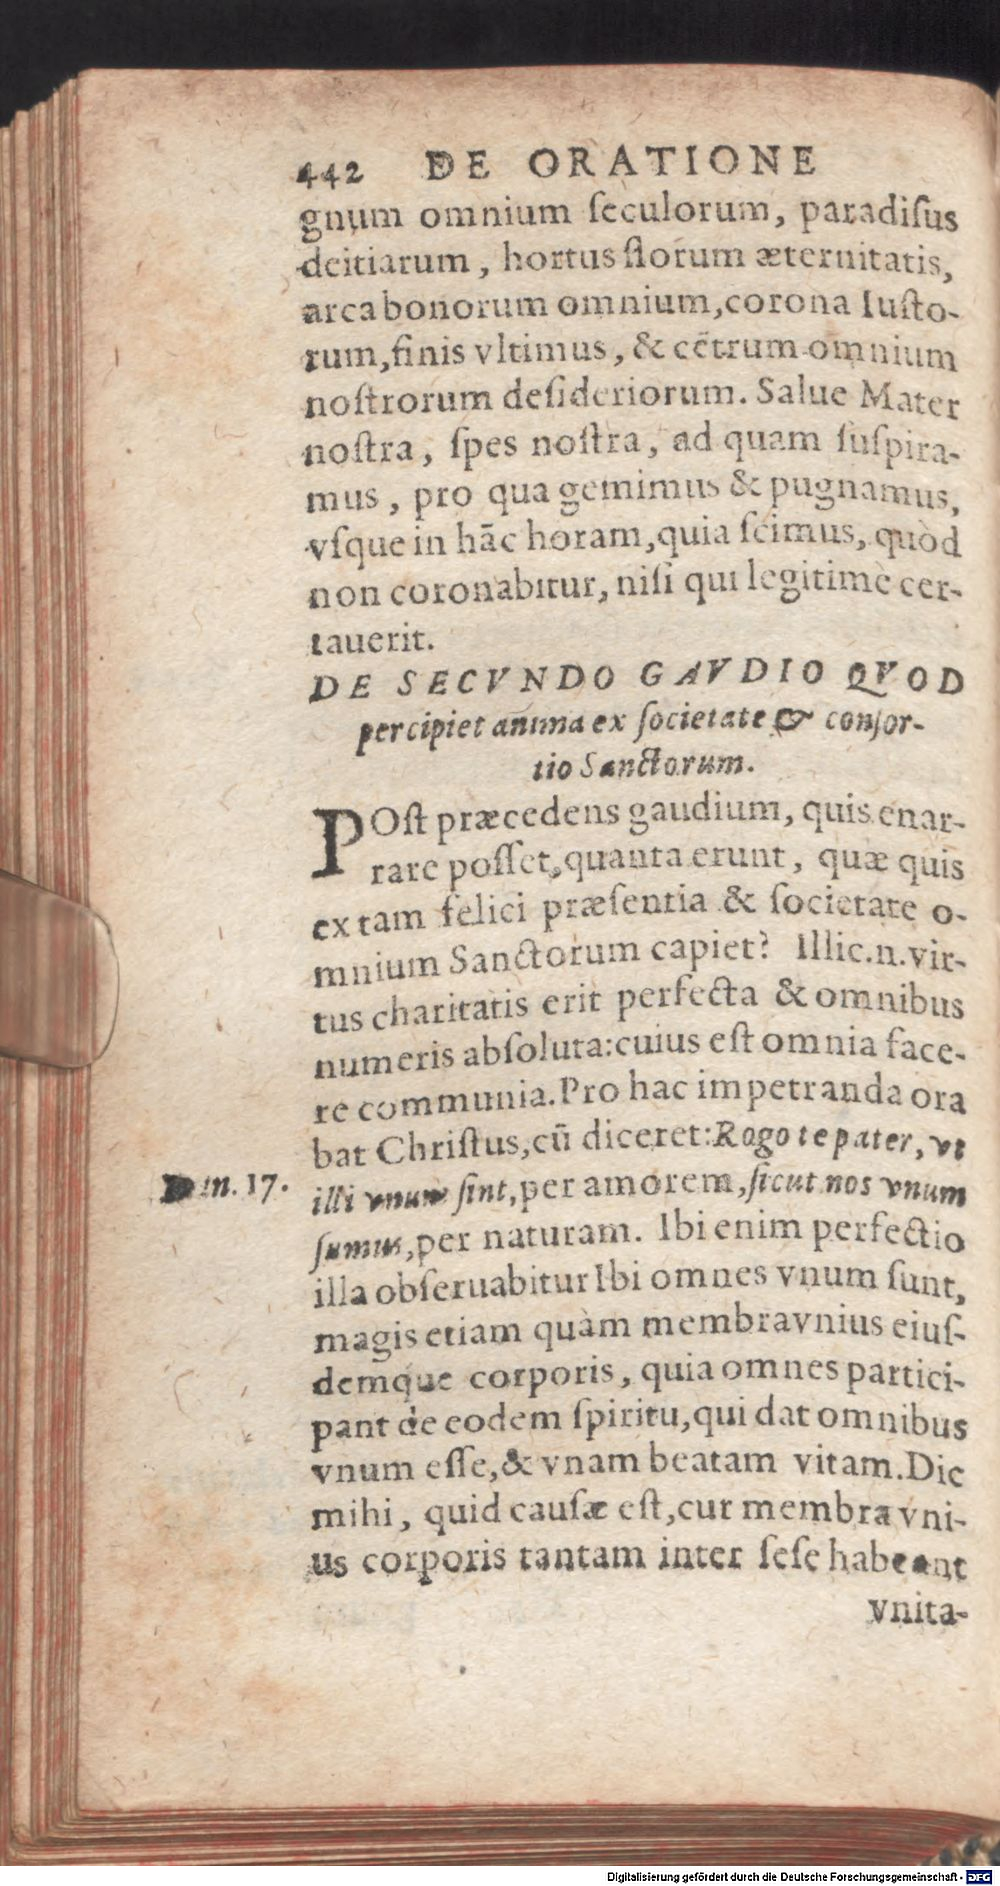 442 DE ORATIONE
gnum omnium ſeculorum, paradiſus
deitiarum, hortus florum æternitatis,
arca bonorum omnium, corona Iuſto-
rum, finis vltimus, & cẽtrum omnium
noſtrorum deſideriorum. Salue Mater
noſtra, ſpes noſtra, ad quam ſuſpira-
mus, pro qua gemimus & pugnamus,
vſque in hāc horam, quia ſcimus, quòd
non coronabitur, niſi qui legitimè cer-
tauerit.
DE SECVNDO GAVDIO QVOD
percipiet anima ex ſocietate & conſor-
tio Sanctorum.
POſt præcedens gaudium, quis enar-
rare poſſet, quanta erunt, quæ quis
ex tam felici præſentia & ſocietate o-
mnium Sanctorum capiet? Illic.n.vir-
tus charitatis erit perfecta & omnibus
numeris abſoluta: cuius eſt omnia face-
re communia. Pro hac impetranda ora
bat Chriſtus, cũ diceret: Rogo te pater, vt
in. 17.
illi vnum ſint, per amorem, ſicut nos vnum
ſumus, per naturam. Ibi enim perfectio
illa obſeruabitur Ibi omnes vnum ſunt,
magis etiam quàm membra vnius eiuſ-
demque corporis, quia omnes partici-
pant de eodem ſpiritu, qui dat omnibus
vnum eſſe, & vnam beatam vitam. Dic
mihi, quid cauſæ eſt, cur membra vni-
us corporis tantam inter ſeſe habeant
vnita-
Digitalisierung gefördert durch die Deutsche Forschungsgemeinschaft - DFG